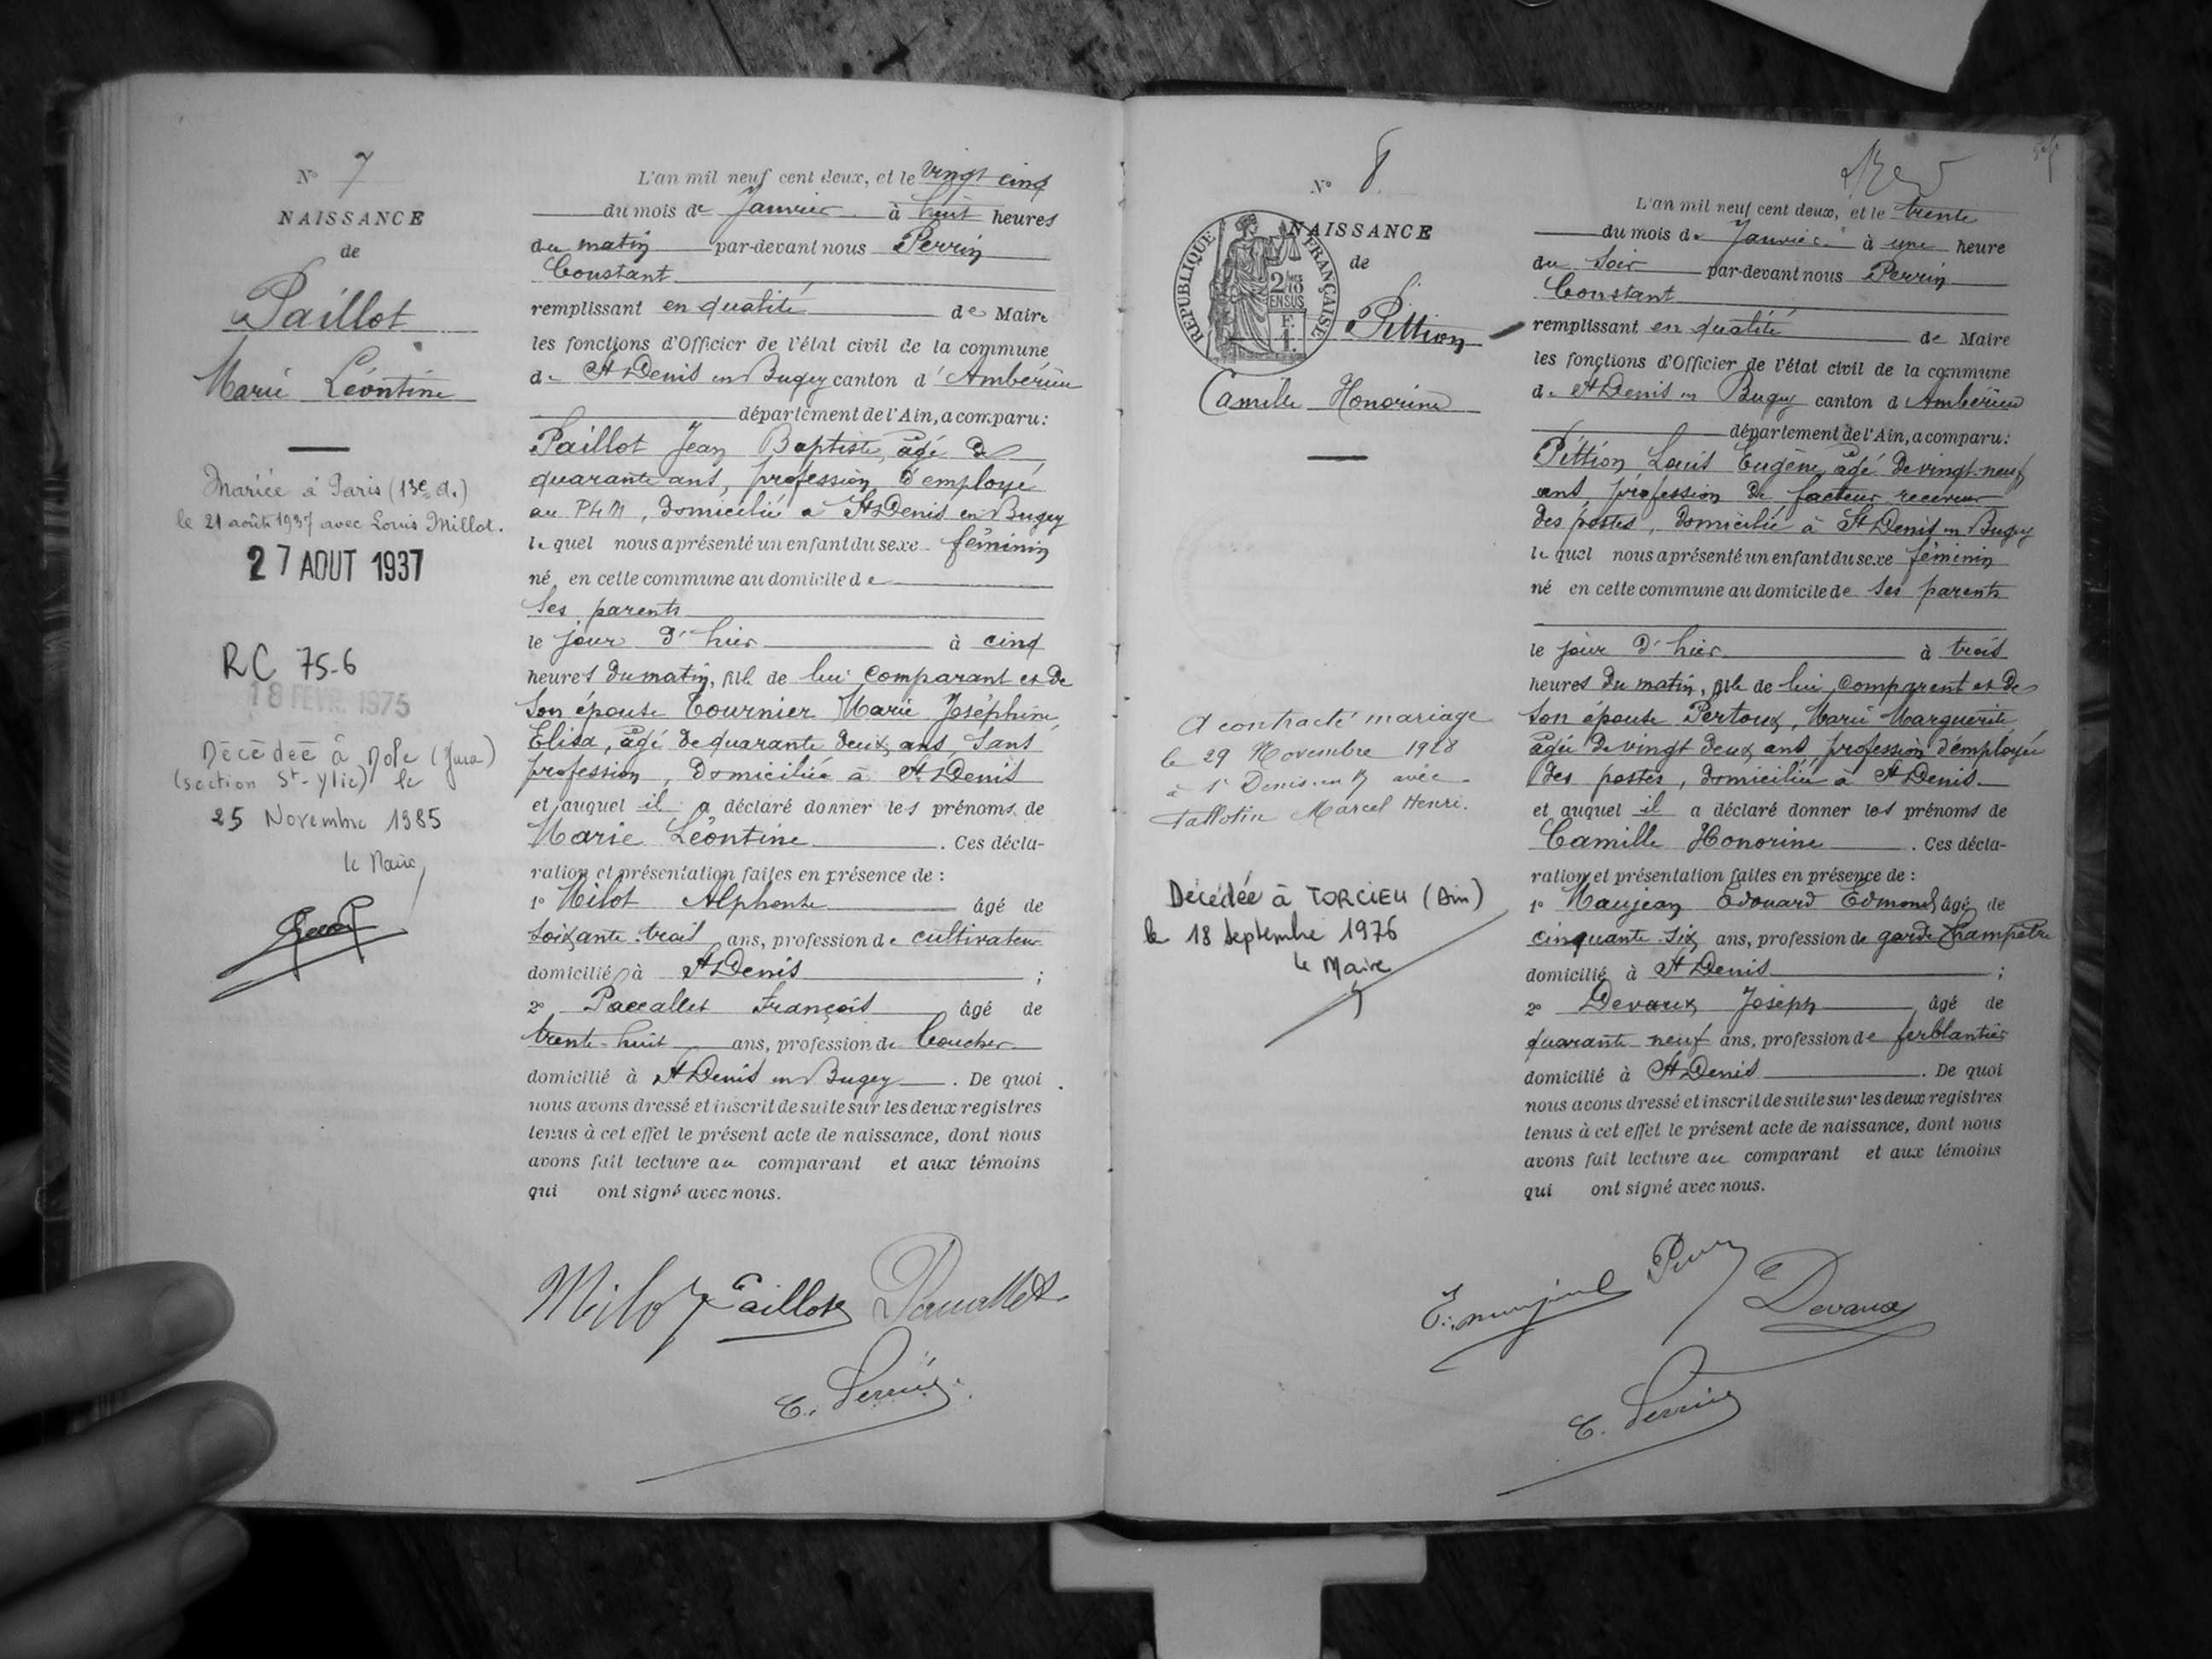 N° 7
NAISSANCE
de
Paillot
Marie Léontine
Mariée à Paris (13e a.)
le 21 août 1937 avec Louis Millot.
27 AOUT 1937
RC 75-6
18 FEVR. 1975
Décédée à Dole (Jura)
(section St-Ylie) le
25 Novembre 1985
le Maire
L'an mil neuf cent deux, et le vingt cinq
du mois de Janvier à huit heures
du matin par-devant nous Perrin
Constant
remplissant en qualité de Maire
les fonctions d'Officier de l'état civil de la commune
de St Denis en Bugey canton d'Ambérieu
département de l'Ain, a comparu:
Paillot Jean Baptiste, agé de
quarante ans, profession d'employé
au PLM, domicilié à St Denis en Bugey
le quel nous a présenté un enfant du sexe féminin
né en cette commune au domicile de
ses parents
le jour d'hier à cinq
heures du matin, fille de lui comparant et de
son épouse Tournier Marie Joséphine
Elisa, agé de quarante deux ans, sans
profession, domiciliée à St Denis
et auquel il a déclaré donner les prénoms de
Marie Léontine. Ces décla-
ration et présentation faites en présence de :
1° Milot Alphonse âgé de
soixante trois ans, profession de cultivateur
domicilié à St Denis ;
2° Paccallet François âgé de
trente-huit ans, profession de boucher
domicilié à St Denis en Bugey. De quoi
nous avons dressé et inscrit de suite sur les deux registres
tenus à cet effet le présent acte de naissance, dont nous
avons fait lecture au comparant et aux témoins
qui ont signé avec nous.
Milot Paillot Paccallet
C. Perrin
N° 8
NAISSANCE
de
REPUBLIQUE FRANÇAISE
2/10 MES
EN SUS
Pittion
Camille Honorine
A contracté mariage
le 29 Novembre 1928
à St Denis en B avec
Tallotin Marcel Henri.
Décédée à TORCIEU (Ain)
le 18 septembre 1976
le Maire
L'an mil neuf cent deux, et le trente
du mois de Janvier à une heure
du soir par-devant nous Perrin
Constant
remplissant en qualité de Maire
les fonctions d'Officier de l'état civil de la commune
de St Denis en Bugey canton d'Ambérieu
département de l'Ain, a comparu:
Pittion Louis Eugène, agé de vingt-neuf
ans, profession de facteur receveur
des postes, domicilié à St Denis en Bugey
le quel nous a présenté un enfant du sexe féminin
né en cette commune au domicile de ses parents
le jour d'hier à trois
heures du matin, fille de lui comparent et de
son épouse Pertoux, Marie Marguerite
agée de vingt deux ans, profession d'employée
des postes, domiciliée à St Denis
et auquel il a déclaré donner les prénoms de
Camille Honorine. Ces décla-
ration et présentation faites en présence de :
1° Maujean Edouard Edmond âgé de
cinquante six ans, profession de garde champêtre
domicilié à St Denis ;
2° Devaux Joseph âgé de
quarante neuf ans, profession de ferblantier
domicilié à St Denis. De quoi
nous avons dressé et inscrit de suite sur les deux registres
tenus à cet effet le présent acte de naissance, dont nous
avons fait lecture au comparant et aux témoins
qui ont signé avec nous.
Devaux
C. Perrin